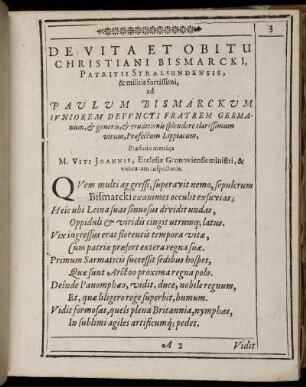 3
DE VITA ET OBITU
CHRISTIANI BISMARCKI,
PATRITII STRALSUNDENSIS,
& militis fortissimi,
ad
PAULUM BISMARCKUM
IVNIOREM DEFVNCTI FRATREM GERMA-
num, & generis, & eruditionis splendore clarissimum
virum, Præfectum Lippiacum,
Præfatio metrica
M. VITI JOANNIS, Ecclesiæ Gronoviensis ministri, &
vicinarum inspectoris.
QVem multi aggressi, superavit nemo, sepulcrum
Bismarcki exanimes occulit exsuvias;
Heic ubi Leina suas sinuosus dividit undas,
Oppiduli & viridis cingit utrumq; latus.
Vix ingressus erat florentis tempora vitæ,
Cum patriæ præfert extera regna suæ.
Primum Sarmaticis successit sedibus hospes,
Quæ sunt Arctoo proxima regna polo.
Deinde Panomphæo, vidit, duce, nobile regnum,
Et, quæ liligero rege superbit, humum.
Vidit formosas, queis plena Britannia, nymphas,
In sublimi agiles artificumq; pedes.
A 2
Vidit